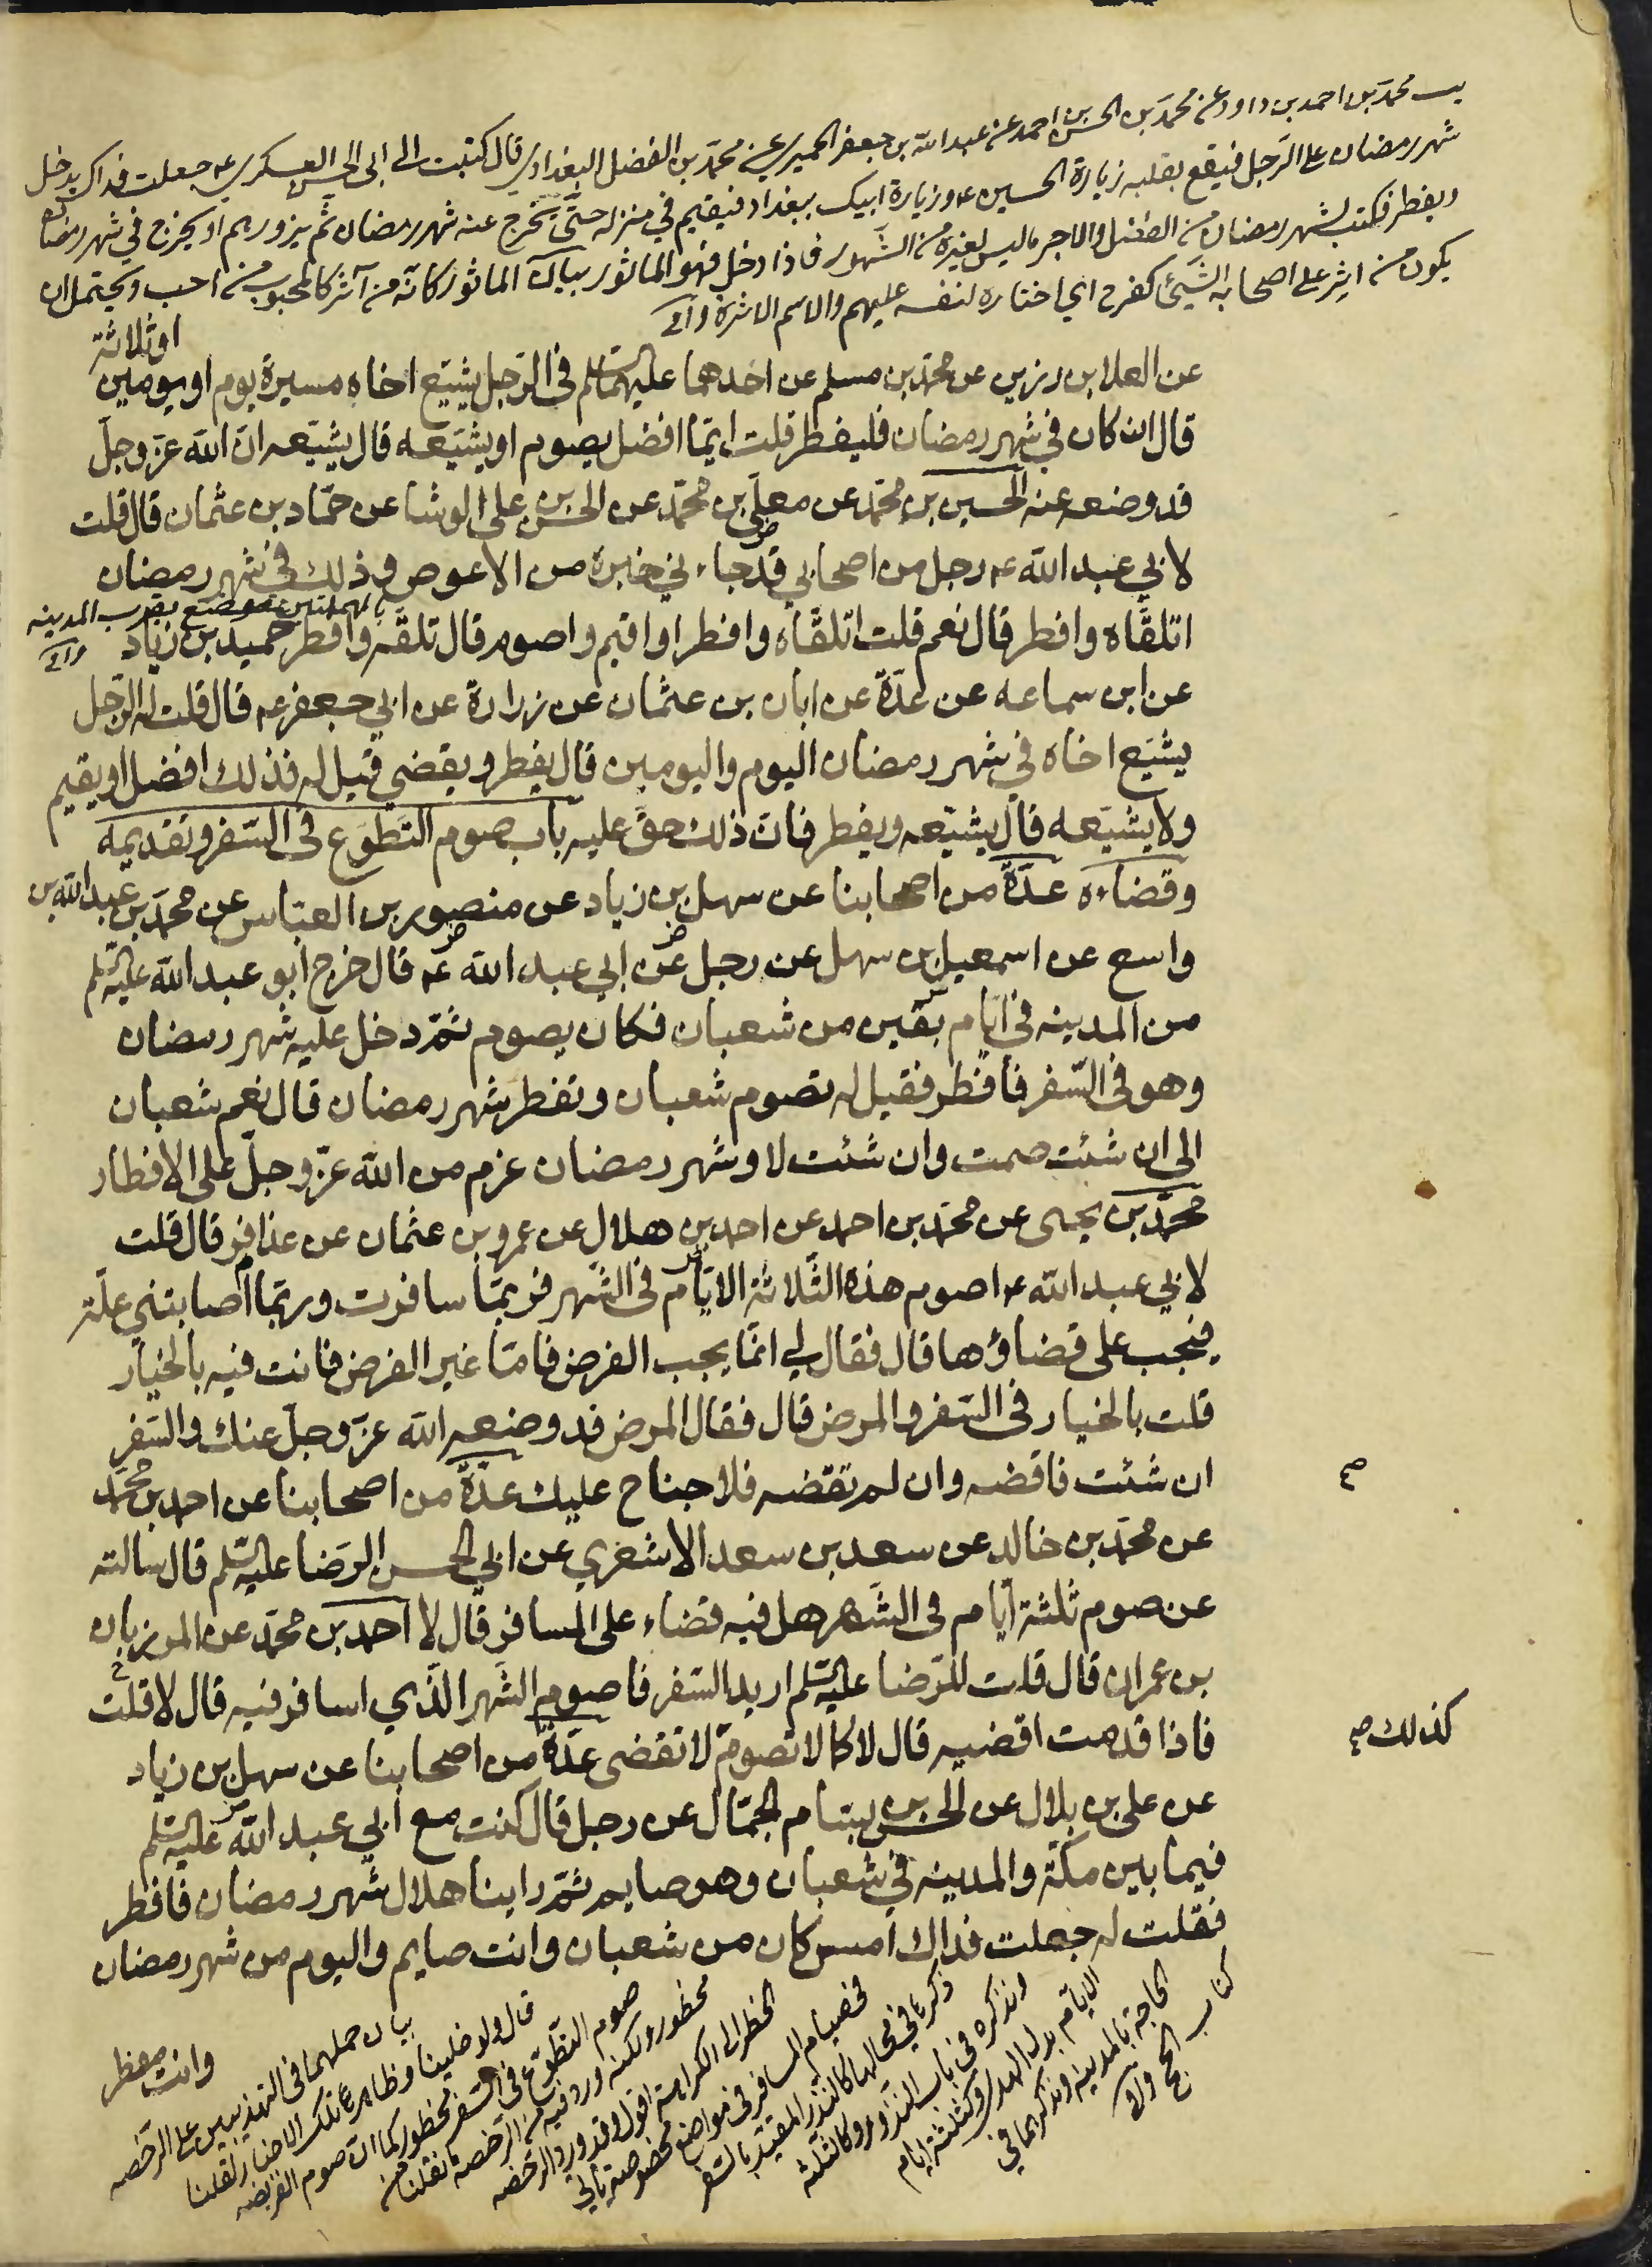 يب محمد بن احمد بن داود عن محمد بن الحسن بن احمد عن عبد الله بن جعفر الحميري عن محمد بن الفضل البغدادي قال كتبت الى ابى الحسن العسكري ع جعلت فداك يدخل
شهر رمضان على الرجل فيقع بقلبه زيارة الحسين ع وزيارة ابيك ببغداد فيقيم في منزله حتى يخرج عنه شهر رمضان ثم يزورهم او يخرج في شهر رمضان
ويفطر فكتب لشهر رمضان من الفضل والاجر ما ليس لغيره من الشهور فاذا دخل فهو الماثور بيان الماثور كانه من آثر كالمحبوب من احب ويحتمل ان
يكون من اثر على اصحابه الشيئ كفرح اي اختاره لنفسه عليهم والاسم الاثرة
او ثلاثة
عن العلا بن رزين عن محمد بن مسلم عن احدهما عليهما السلم فى الرّجل يشيّع اخاه مسيرة يوم او يومين
قال ان كان في شهر رمضان فليفطر قلت ايّما افضل يصوم او يشيّعه قال يشيّعه انّ الله عزّ وجلّ
قد وضعه عنه الحسين بن محمّد عن معلّى بن محمّد عن الحسن بن على الوشا عن حمّاد بن عثمان قال قلت
لابي عبد الله ع رجل من اصحابي قد جاءني خبره من الاعوص وذلك في شهر رمضان
بالمهملتين موضع بقرب المدينه
اتلقّاه وافطر قال نعم قلت اتلقّاه وافطر او اقيم واصوم قال تلقّه وافطر حميد بن زياد
عن ابن سماعه عن عدّة عن ابان بن عثمان عن زرارة عن ابي جعفر ع قال قلت له الرّجل
يشيّع اخاه في شهر رمضان اليوم واليومين قال يفطر ويقضي قيل له فذلك افضل او يقيم
ولا يشيّعه قال يشيّعه ويفطر فانّ ذلك حقّ عليه باب صوم التّطوّع فى السّفر وتقديمه
وقضاءه عدّة من اصحابنا عن سهل بن زياد عن منصور بن العبّاس عن محمّد بن عبد الله بن
واسع عن اسمعيل بن سهل عن رجل عن ابي عبد الله ع قال خرج ابو عبد الله عليه السلم
من المدينه فى ايّام بقين من شعبان فكان يصوم ثمّ دخل عليه شهر رمضان
وهو فى السّفر فافطر فقيل له تصوم شعبان وتفطر شهر رمضان قال نعم شعبان
الى ان شئت صمت وان شئت لا وشهر رمضان عزم من الله عزّ وجلّ على الافطار
محمّد بن يحيى عن محمّد بن احمد عن احمد بن هلال عن عمرو بن عثمان عن عذافر قال قلت
لابي عبد الله ع اصوم هذه الثّلاثة الايّام فى الشّهر فربّما سافرت وربّما اصابتني علّة
فيجب على قضاؤها قال فقال لي انّما يجب الفرض فامّا غير الفرض فانت فيه بالخيار
قلت بالخيار فى السّفر والمرض قال فقال المرض قد وضعه الله عزّ وجلّ عنك والسّفر
ان شئت فاقضه وان لم تقضه فلا جناح عليك عدّة من اصحابنا عن احمد بن محمّد
صح
عن محمّد بن خالد عن سعد بن سعد الاشعري عن ابي الحسن الرّضا عليه السلم قال سالته
عن صوم ثلثة ايّام فى الشّهر هل فيه قضاء على المسافر قال لا احمد بن محمّد عن المرزبان
بن عمران قال قلت للرّضا عليه السلم اريد السّفر فاصوم الشّهر الّذي اسافر فيه قال لا قلت
فاذا قدمت اقضيه قال لا كما لا تصوم لا تقضى عدّة من اصحابنا عن سهل بن زياد
كذلك صح
عن على بن بلال عن الحسن بن بسّام الجمّال عن رجل قال كنت مع ابي عبد الله عليه السلم
فيما بين مكّة والمدينه في شعبان وهو صايم ثمّ راينا هلال شهر رمضان فافطر
فقلت له جعلت فداك امس كان من شعبان وانت صايم واليوم من شهر رمضان
وانت مفطر
بيان حملهما فى التهذيبين على الرخصه
قال ولو خلينا وظاهر تلك الاخبار لقلنا
صوم التطوّع فى السّفر محظور كما ان صوم الفريضه
محظور ولكنه ورد فيه من الرخصة ما نقلنا من
الحظر الى الكراهة اقول وقد ورد الرخصه
في صيام المسافر فى مواضع مخصوصة ياتي
ذكرها في محالها كالنذر المقيد بالسفر
ونذكره فى باب النذور وكالثلثة
الايّام بدل الهدى وكثلثة ايام
الحاجة بالمدينه ونذكرهما في
كتاب الحج